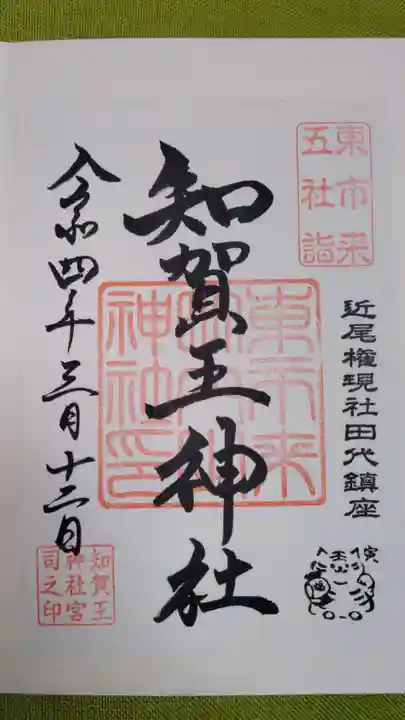 東市来
五社詣
近尾権現社田代鎮座
寅
知賀王神社
東市来
神社印
令和四年三月十二日
知賀王
神社宮
司之印